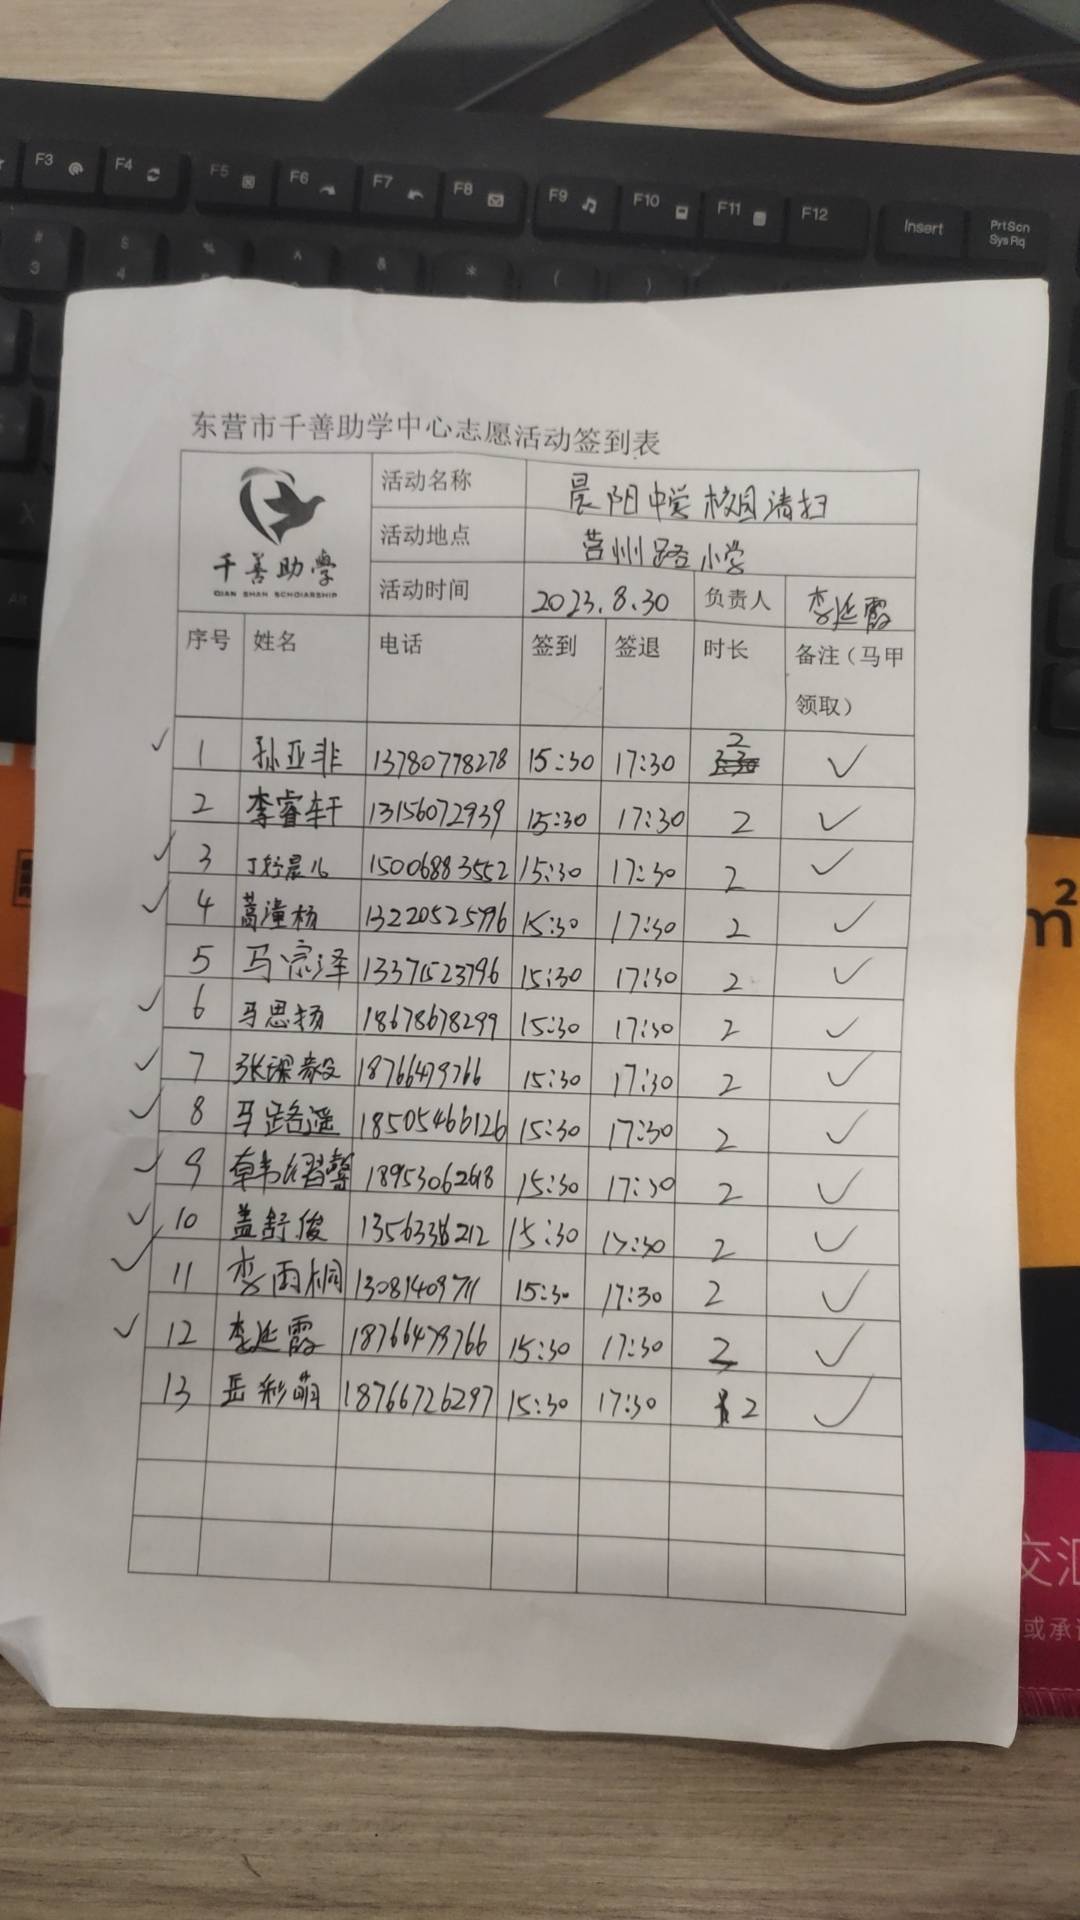 F3
F4
F5
F6
F7
F8
F9
F10
F11
F12
Insert
PrtScn
SysRq
#
3
$
4
%
^
&
*
(
)
Alt
X
东营市千善助学中心志愿活动签到表
千善助学
QIAN SHAN SCHOLARSHIP
活动名称 晨阳中学校园清扫
活动地点 莒州路小学
活动时间 2023.8.30 负责人 李延霞
序号 姓名 电话 签到 签退 时长 备注（马甲
领取）
✓ 1 孙亚非 13780778278 15:30 17:30 2 ✓
2 李睿轩 13156072939 15:30 17:30 2 ✓
✓ 3 15006883552 15:30 17:30 2 ✓
✓ 4 葛潼杨 13220525796 15:30 17:30 2 ✓
5 马宗泽 13371523796 15:30 17:30 2 ✓
✓ 6 马思扬 18678678299 15:30 17:30 2 ✓
✓ 7 18766479766 15:30 17:30 2 ✓
✓ 8 马路遥 18505466126 15:30 17:30 2 ✓
✓ 9 18953062618 15:30 17:30 2 ✓
✓ 10 盖舒俊 15:30 17:30 2 ✓
✓ 11 李雨桐 15:30 17:30 2 ✓
✓ 12 李延霞 18766479766 15:30 17:30 2 ✓
13 岳彩萌 18766726297 15:30 17:30 2 ✓
m²
交汇
或承